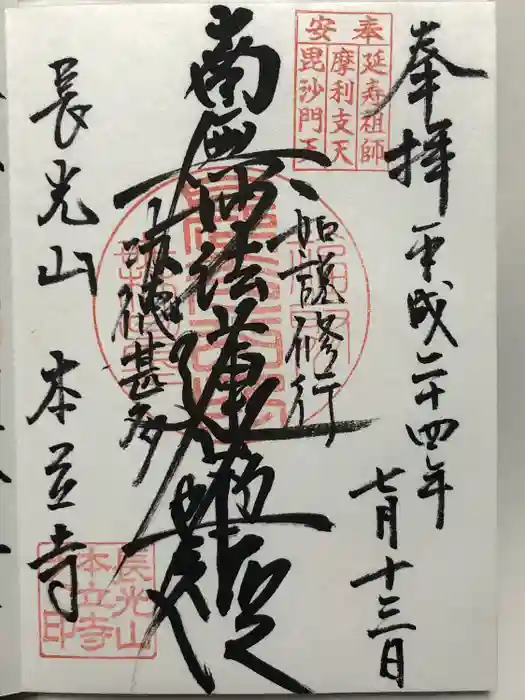 奉拝
平成二十四年
七月十三日
奉安
延寿祖師
摩利支天
毘沙門天
如説修行
南無妙法蓮華経
功徳甚多
長光山 本立寺
長光山
本立寺
印